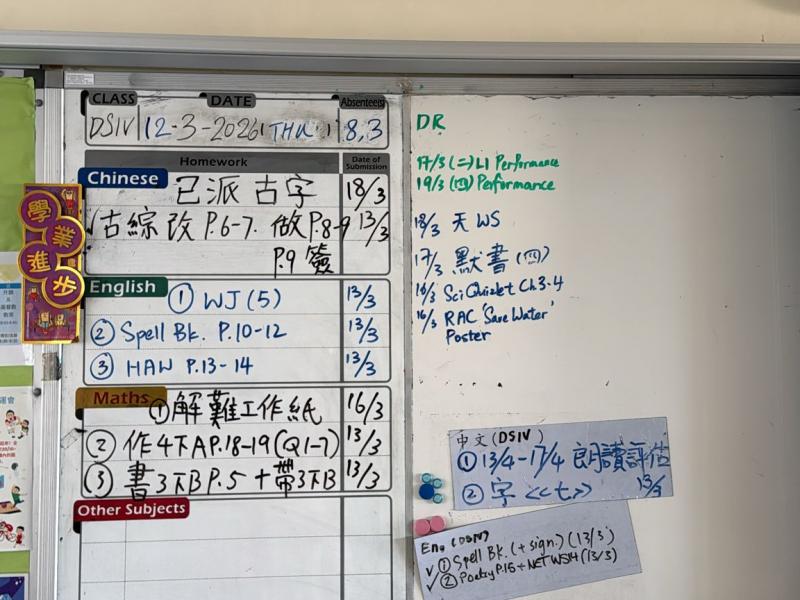 CLASS DATE Absentee(s)
DSIV 12-3-2026 THU 8,3
Homework Date of Submission
Chinese 已派古字 18/3
√古綜改 P.6-7. 做P.8-9 13/3
P.9 簽
English ① WJ (5) 13/3
② Spell Bk. P.10-12 13/3
③ HAW P.13-14 13/3
Maths ①解難工作紙 16/3
② 作4下A P.18-19 (Q1-7) 13/3
③ 書3下B P.5 + 帶3下B 13/3
Other Subjects
學業進步
DR
17/3 (二) L1 Performance
19/3 (四) Performance
18/3 天 WS
17/3 默書 (四)
16/3 Sci Quizlet Ch.3-4
16/3 RAC 'Save Water' Poster
中文 (DSIV)
① 13/4-17/4 朗讀評估
② 字 <<七>> 13/3
Eng (DSIV)
√ ① Spell Bk. (+ sign.) (13/3)
√ ② Poetry P.15 + NET WS14 (13/3)